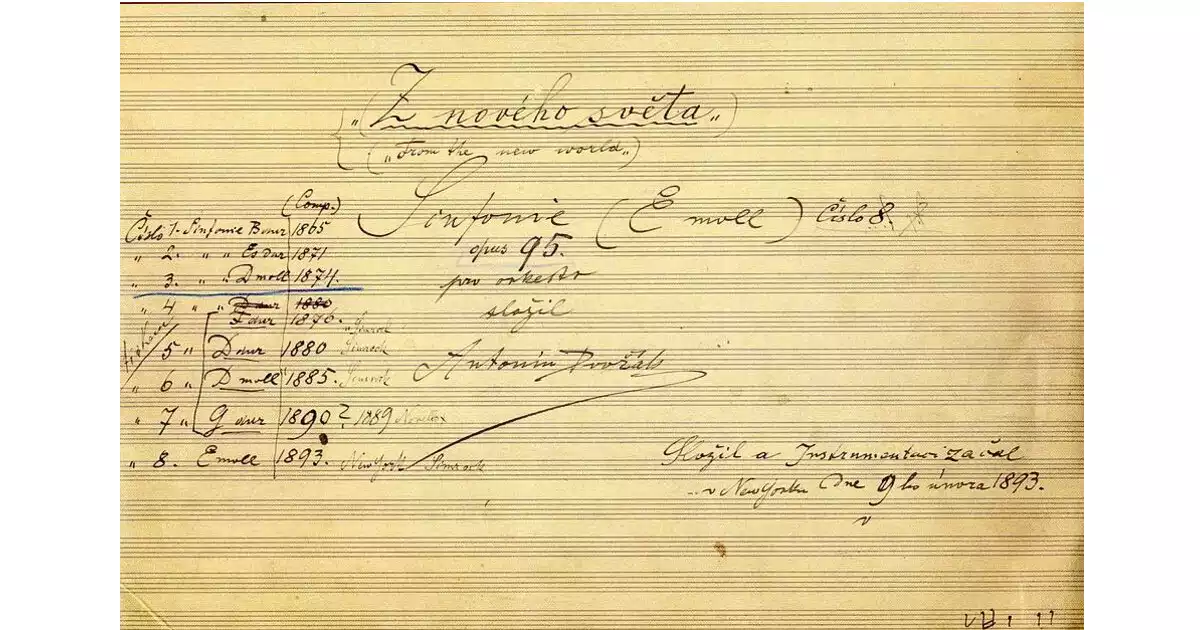 „Z nového světa„
(„From the new world„)
Sinfonie (E moll) Číslo 8.
opus 95.
pro orkestr
složil
Antonín Dvořák
(Comp.)
Číslo 1. Sinfonie B dur 1865
„ 2. „ „ Es dur 1871
„ 3. „ „ D moll 1874.
„ 4 „ „ D dur 1880
F dur 1876. „Simrock
5 „ D dur 1880 Simrock
„ 6 „ D moll 1885. Simrock
„ 7 „ G dur 1890? 1889 Novello
„ 8. E moll 1893. New York Simrock
Složil a Instrumentaci začal
v New Yorku dne 9ho února 1893.